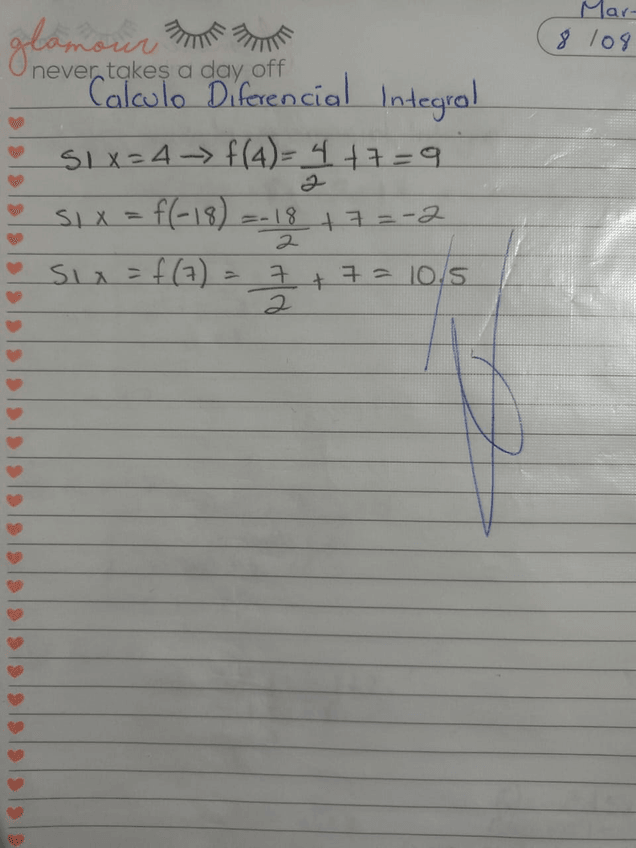 Mar-
8 /08
glamour
never takes a day off
Calculo Diferencial Integral
SI x = 4 → f(4) = 4/2 + 7 = 9
SI x = f(-18) = -18/2 + 7 = -2
SI x = f(7) = 7/2 + 7 = 10.5